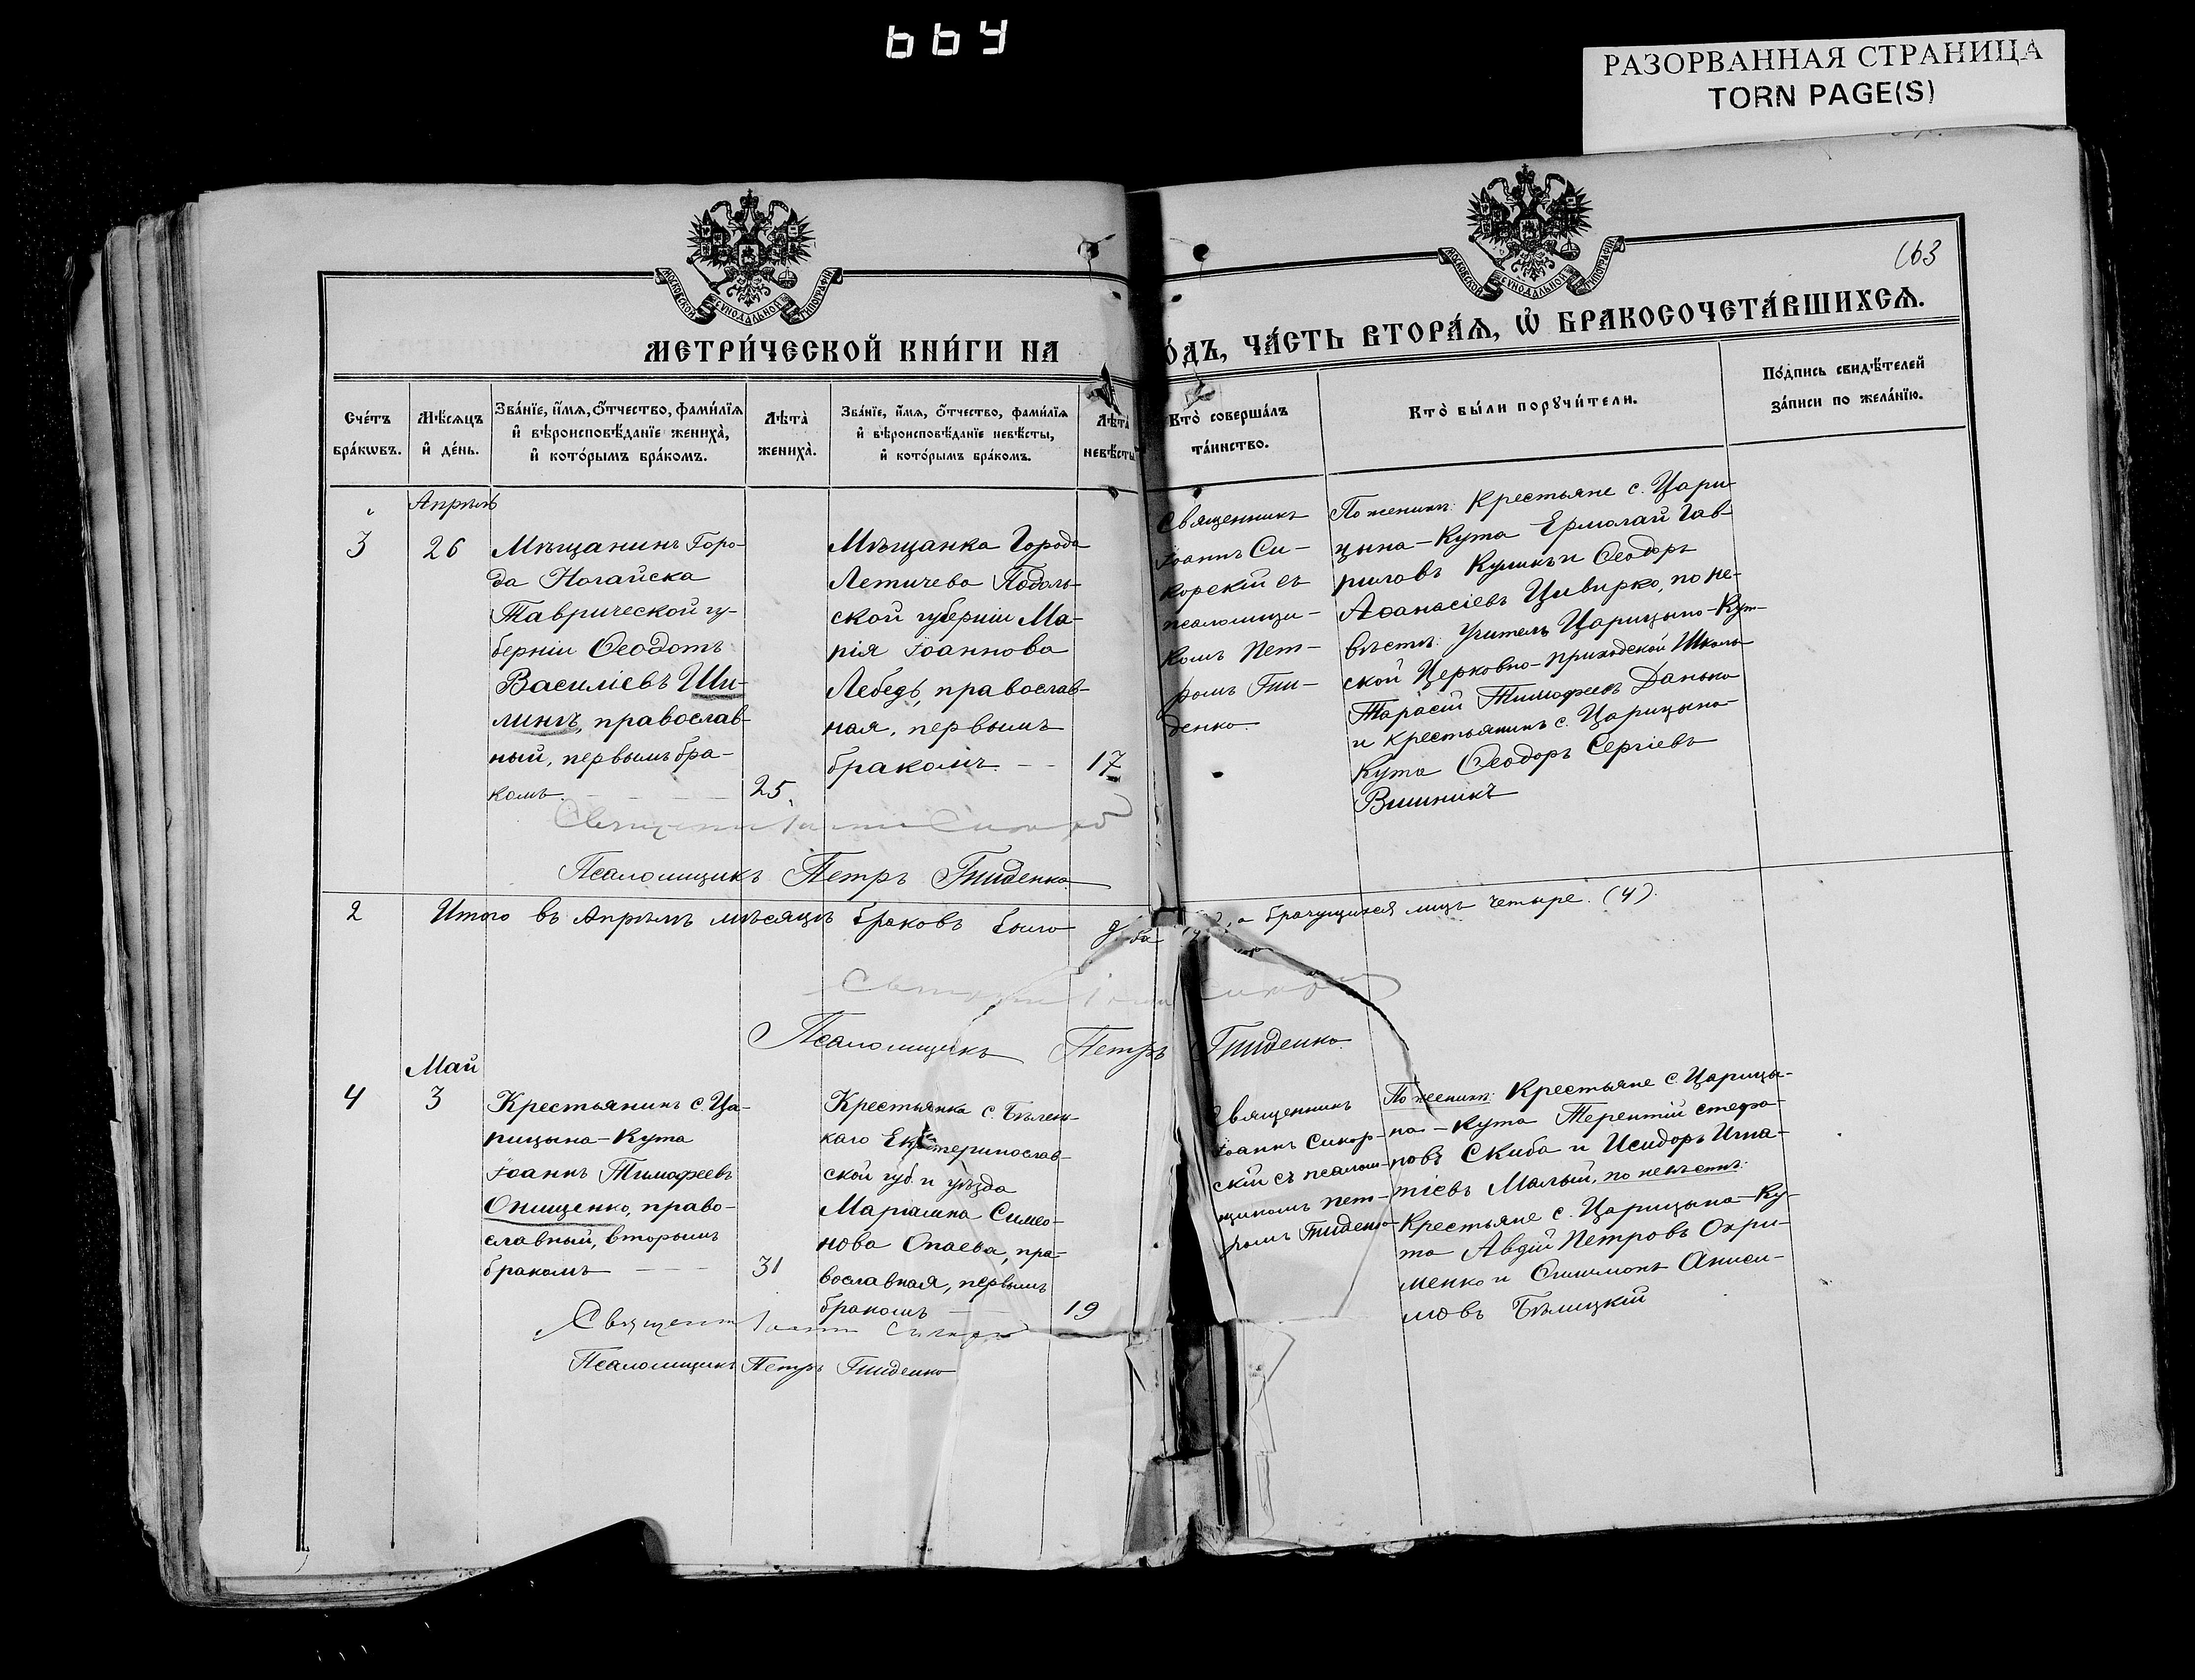 664
РАЗОРВАННАЯ СТРАНИЦА
TORN PAGE(S)
МОСКОВСКОЙ СѴНОДАЛЬНОЙ ТИПОГРАФІИ
МОСКОВСКОЙ СѴНОДАЛЬНОЙ ТИПОГРАФІИ
163
МЕТРИ́ЧЕСКОЙ КНИ́ГИ НА
О́ДЪ, ЧА́СТЬ ВТОРА́Я, Ѡ҆ БРАКОСОЧЕТА́ВШИХСЯ.
Сче́тъ
бра́кѡвъ.
Мѣ́сяцъ
и҆ де́нь.
Зва́нїе, и҆́мя, о҆́тчество, фами́лїя
и҆ вѣроисповѣ́данїе жениха̀,
и҆ кото́рымъ бра́комъ.
Лѣта̀
жениха̀.
Зва́нїе, и҆́мя, о҆́тчество, фами́лїя
и҆ вѣроисповѣ́данїе невѣ́сты,
и҆ кото́рымъ бра́комъ.
Лѣта̀
невѣ́сты
Кто̀ соверша́лъ
та́инство.
Кто̀ бы́ли порꙋчи́тели.
По́дпись свидѣ́телей
за́писи по жела́нїю.
Апрѣль
3
26
Мѣщанинъ Горо-
да Ногайска
Таврической гу-
берніи Ѳеодотъ
Василіевъ Ши-
линъ, православ-
ный, первымъ бра-
комъ.
25.
Мѣщанка Города
Летичева Подоль-
ской губерніи Ма-
рія Іоаннова
Лебедь, православ-
ная, первымъ
бракомъ.
17
Священникъ
Іоаннъ Си-
корскій съ
псаломщи-
комъ Пет-
ромъ Гни-
денко.
По женихѣ: Крестьяне с. Цари-
цына-Кута Ермолай Гав-
риловъ Куликъ и Ѳеодоръ
Аѳанасіевъ Цивирко, по не-
вѣстѣ: Учитель Царицыно-Кут-
ской Церковно-приходской Школы
Тарасій Тимофеевъ Данько
и крестьянинъ с. Царицына-
Кута Ѳеодоръ Сергіевъ
Вишникъ
Псаломщикъ Петръ Гниденко
2
Итого въ Апрѣлѣ мѣсяцѣ браковъ было два (2), а брачущихся лицъ четыре. (4).
Псаломщикъ Петръ Гниденко.
Май
4
3
Крестьянинъ с. Ца-
рицына-Кута
Іоаннъ Тимофеевъ
Онищенко, право-
славный, вторымъ
бракомъ
31
Крестьянка с. Бѣлень-
каго Екатеринослав-
ской губ. и уѣзда
Маріамна Симео-
нова Опаева, пра-
вославная, первымъ
бракомъ
19
Священникъ
Іоаннъ Сикор-
скій съ псалом-
щикомъ Пет-
ромъ Гниденко
По женихѣ: Крестьяне с. Царицы-
на-Кута Терентій Стефа-
новъ Скиба и Исидоръ Игна-
тіевъ Малый, по невѣстѣ:
Крестьяне с. Царицына-Ку-
та Авдій Петровъ Охри-
менко и Филимонъ Аниси-
мовъ Бѣлицкій
Священ Іоаннъ
Псаломщикъ Петръ Гниденко